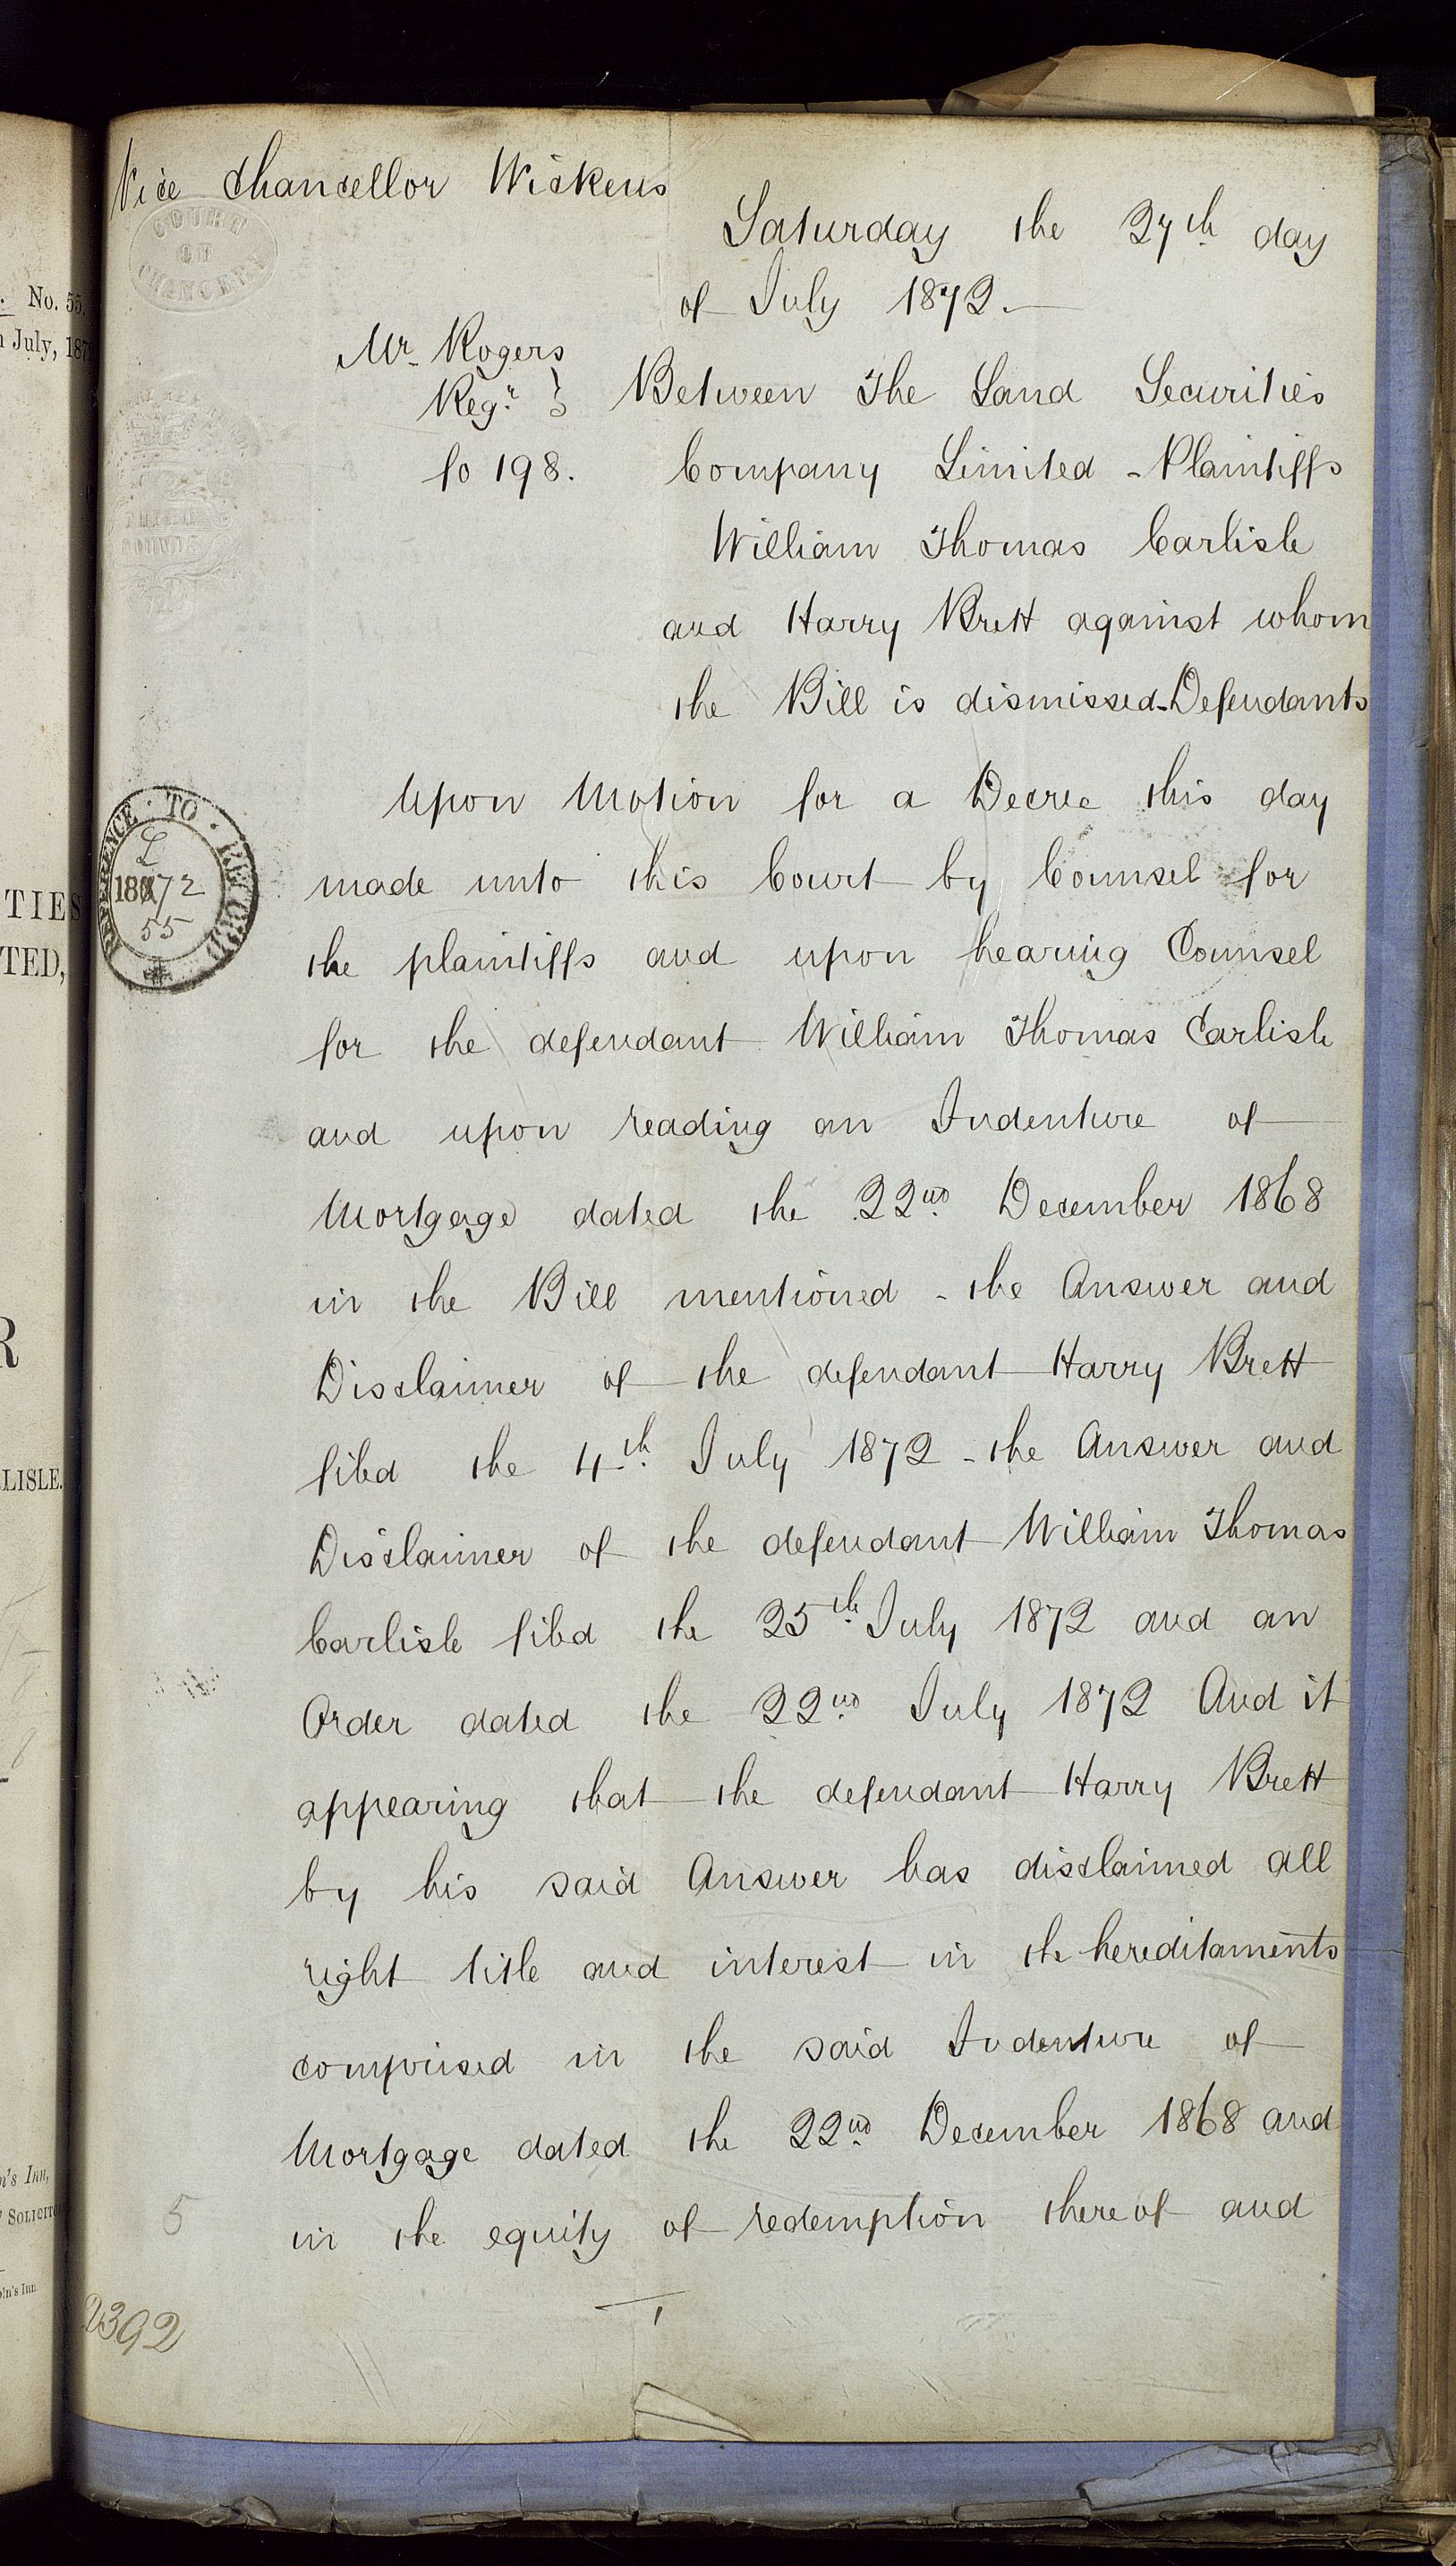 Vice Chancellor Wickens
COURT
OF
CHANCERY
Saturday the 27th day
of July 1872.—
Mr Rogers
Regr }
fo 198.
Between The Land Securities
Company Limited - Plaintiffs
William Thomas Carlisle
and Harry Brett against whom
the Bill is dismissed - Defendants
Upon Motion for a Decree this day
made unto this Court by Counsel for
the plaintiffs and upon hearing Counsel
for the defendant William Thomas Carlisle
and upon reading an Indenture of
Mortgage dated the 22nd December 1868
in the Bill mentioned - the Answer and
Disclaimer of the defendant Harry Brett
filed the 4th July 1872 - the Answer and
Disclaimer of the defendant William Thomas
Carlisle filed the 25th July 1872 and an
Order dated the 22nd July 1872 And it
appearing that the defendant Harry Brett
by his said Answer has disclaimed all
right title and interest in the hereditaments
comprised in the said Indenture of
Mortgage dated the 22nd December 1868 and
in the equity of redemption thereof and
REFERENCE · TO · RECORD
L
1872
55
5
2392
No. 55.
July, 187
TIES
TED,
R
LISLE.
n's Inn,
SOLICITO
ln's Inn